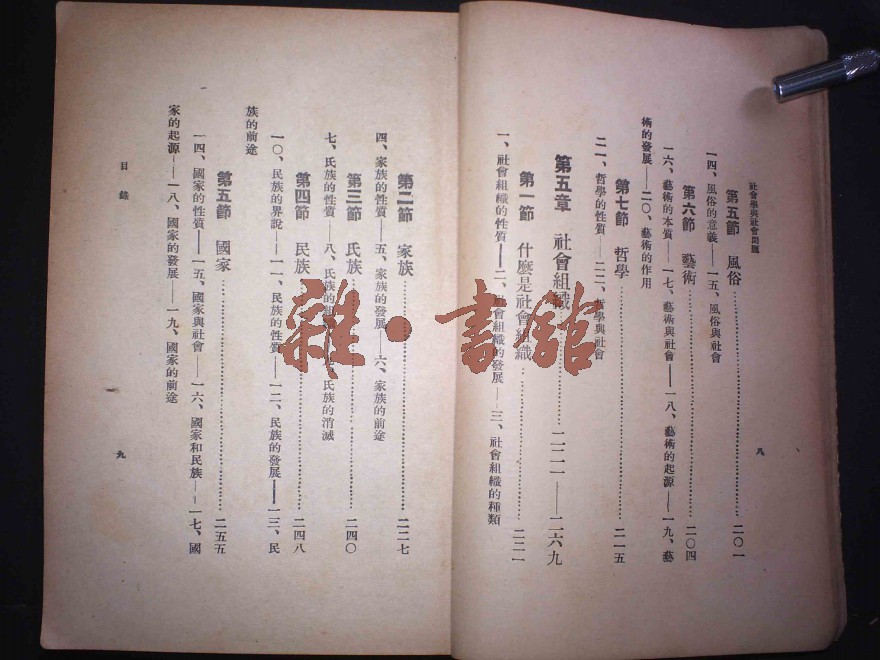 社會學與社會問題
八
第五節　風俗……二〇一
一四、風俗的意義——一五、風俗與社會
第六節　藝術……二〇四
一六、藝術的本質——一七、藝術與社會——一八、藝術的起源——一九、藝
術的發展——二〇、藝術的作用
第七節　哲學……二一五
二一、哲學的性質——二二、哲學與社會
第五章　社會組織……二二一——二六九
第一節　什麼是社會組織……二二一
一、社會組織的性質——二、社會組織的發展——三、社會組織的種類
第二節　家族……二二七
四、家族的性質——五、家族的發展——六、家族的前途
第三節　氏族……二四〇
七、氏族的性質——八、氏族的　氏族的消滅
第四節　民族……二四八
一〇、民族的界說——一一、民族的性質——一二、民族的發展——一三、民
族的前途
第五節　國家……二五五
一四、國家的性質——一五、國家與社會——一六、國家和民族——一七、國
家的起源——一八、國家的發展——一九、國家的前途
目錄
九
雜·書館